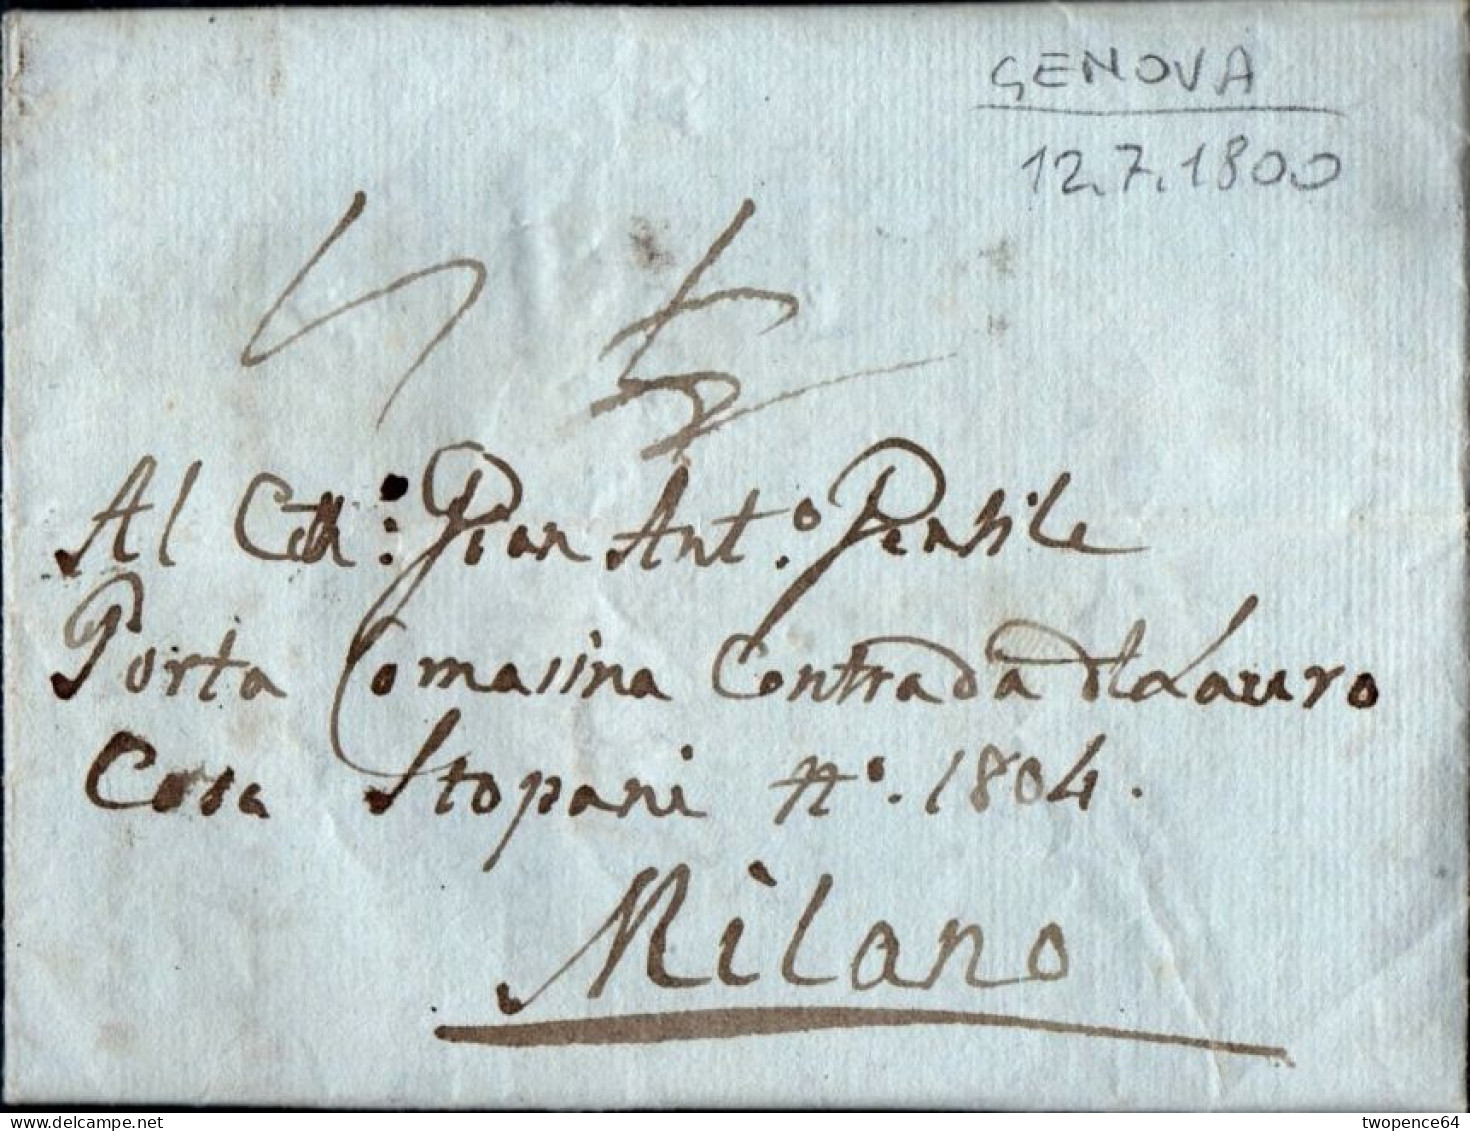 GENOVA
12.7.1800
Al Citt: Gian Ant.º Pensile
Porta Comasina Contrada del Lauro
Casa Stopani Nº. 1804.
Milano
twopence64